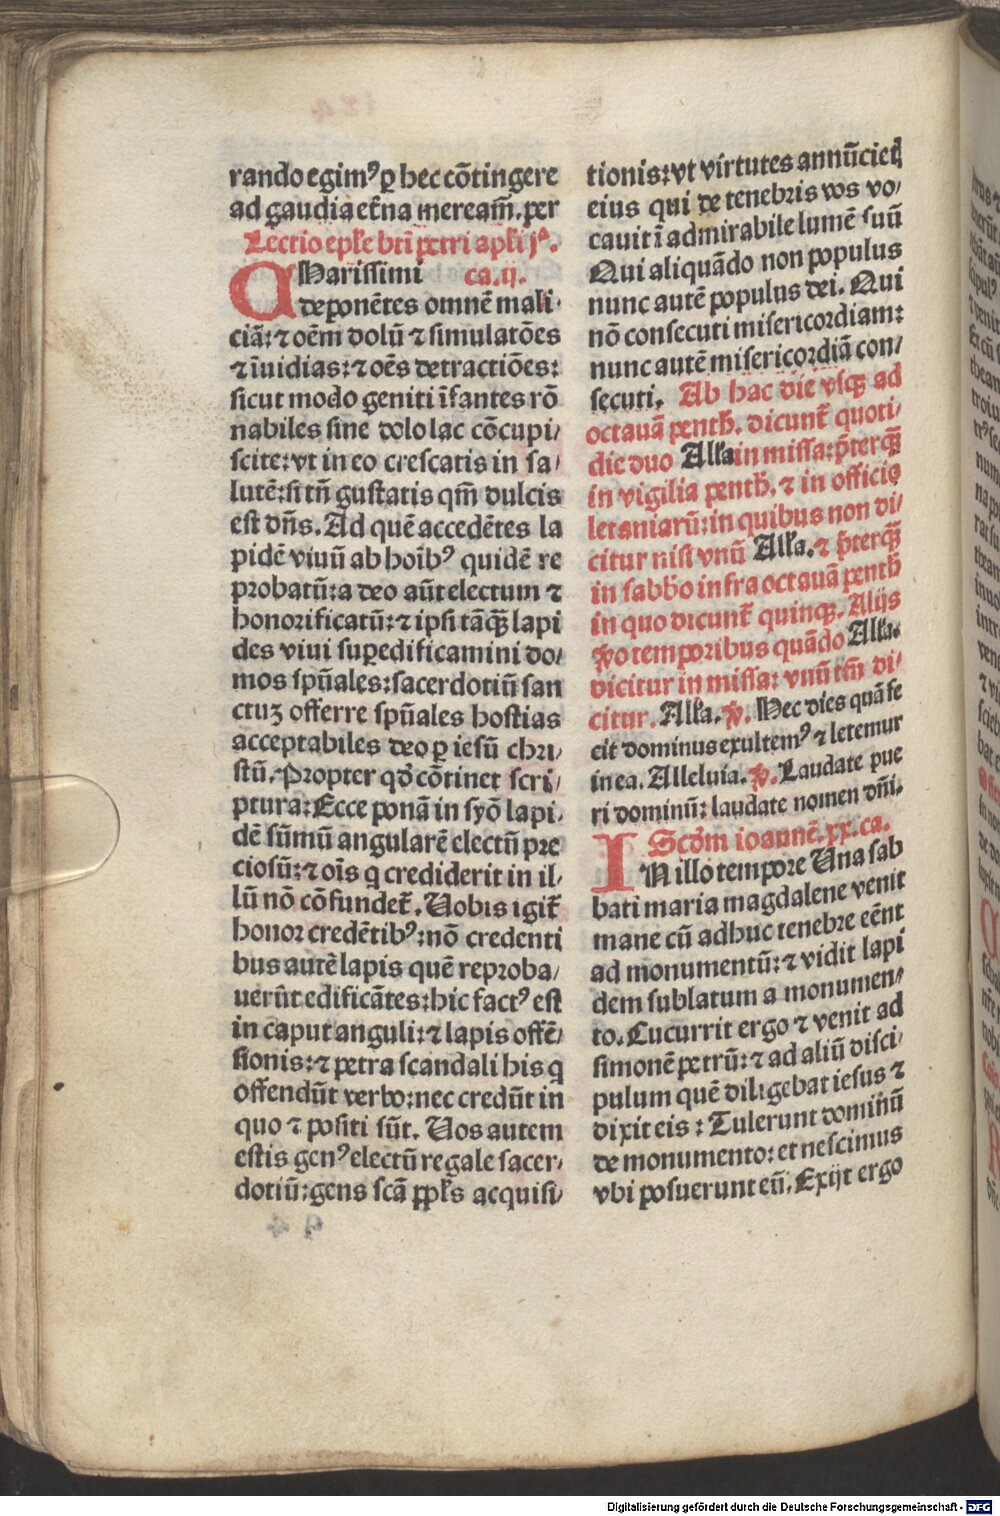 rando egimꝰ ꝑ hec cõtingere
ad gaudia etͬna meream̃. per
Lectio epłe btĩ petri apłi jᵃ.
CHarissimi ca. ij.
deponẽtes omnẽ mali-
ciã: ⁊ oẽm dolũ ⁊ simulatões
⁊ ĩuidias: ⁊ oẽs detractiões:
sicut modo geniti ĩfantes rõ
nabiles sine dolo lac cõcupi/
scite: vt in eo crescatis in sa/
lutẽ: si tñ gustatis qm̃ dulcis
est dñs. Ad quẽ accedẽtes la
pidẽ viuũ ab hoĩbꝰ quidẽ re
probatũ: a deo aũt electum ⁊
honorificatũ: ⁊ ipsi tãꝙ̃ lapi
des viui suꝑedificamini do/
mos spũales: sacerdotiũ san
ctuʒ offerre spũales hostias
acceptabiles deo ꝑ iesũ chri/
stũ. Propter qđ cõtinet scri/
ptura: Ecce ponã in syõ lapi/
dẽ sũmũ angularẽ electũ pre
ciosũ: ⁊ oĩs q crediderit in il/
lũ nõ cõfundet͛. Vobis igit͛
honor credẽtibꝰ: nõ credenti
bus autẽ lapis quẽ reproba/
uerũt edificãtes: hic factꝰ est
in caput anguli: ⁊ lapis offẽ/
sionis: ⁊ petra scandali his q
offendũt verbo: nec credũt in
quo ⁊ positi sũt. Vos autem
estis genꝰ electũ regale sacer/
dotiũ: gens scã ppłs acquisi/
tionis: vt virtutes annũciet͛
eius qui de tenebris vos vo/
cauit ĩ admirabile lumẽ suũ
Qui aliquãdo non populus
nunc autẽ populus dei. Qui
nõ consecuti misericordiam:
nunc autẽ misericordiã con/
secuti. Ab hac die vsqꝫ ad
octauã pentħ. dicunt͛ quoti/
die duo Ałła in missa: p̃terꝙ̃
in vigilia pentħ. ⁊ in officio
letaniarũ: in quibus non di/
citur nisi vnũ Ałła. ⁊ p̃terꝙ̃
in sabbo infra octauã pentħ
in quo dicunt͛ quinqꝫ. Alijs
ꝟo temporibus quãdo Ałła.
dicitur in missa: vnũ tm̃ di/
citur. Ałła. ℣. Hec dies quã fe
cit dominus exultemꝰ ⁊ letemur
in ea. Alleluia. ℣. Laudate pue
ri dominũ: laudate nomen dñi.
Scđm ioannẽ. xx. ca.
IN illo tempore Una sab
bati maria magdalene venit
mane cũ adhuc tenebre eẽnt
ad monumentũ: ⁊ vidit lapi
dem sublatum a monumen/
to. Cucurrit ergo ⁊ venit ad
simonẽ petrũ: ⁊ ad aliũ disci/
pulum quẽ diligebat iesus ⁊
dixit eis: Tulerunt dominũ
de monumento: et nescimus
vbi posuerunt eũ. Exijt ergo
Digitalisierung gefördert durch die Deutsche Forschungsgemeinschaft - DFG